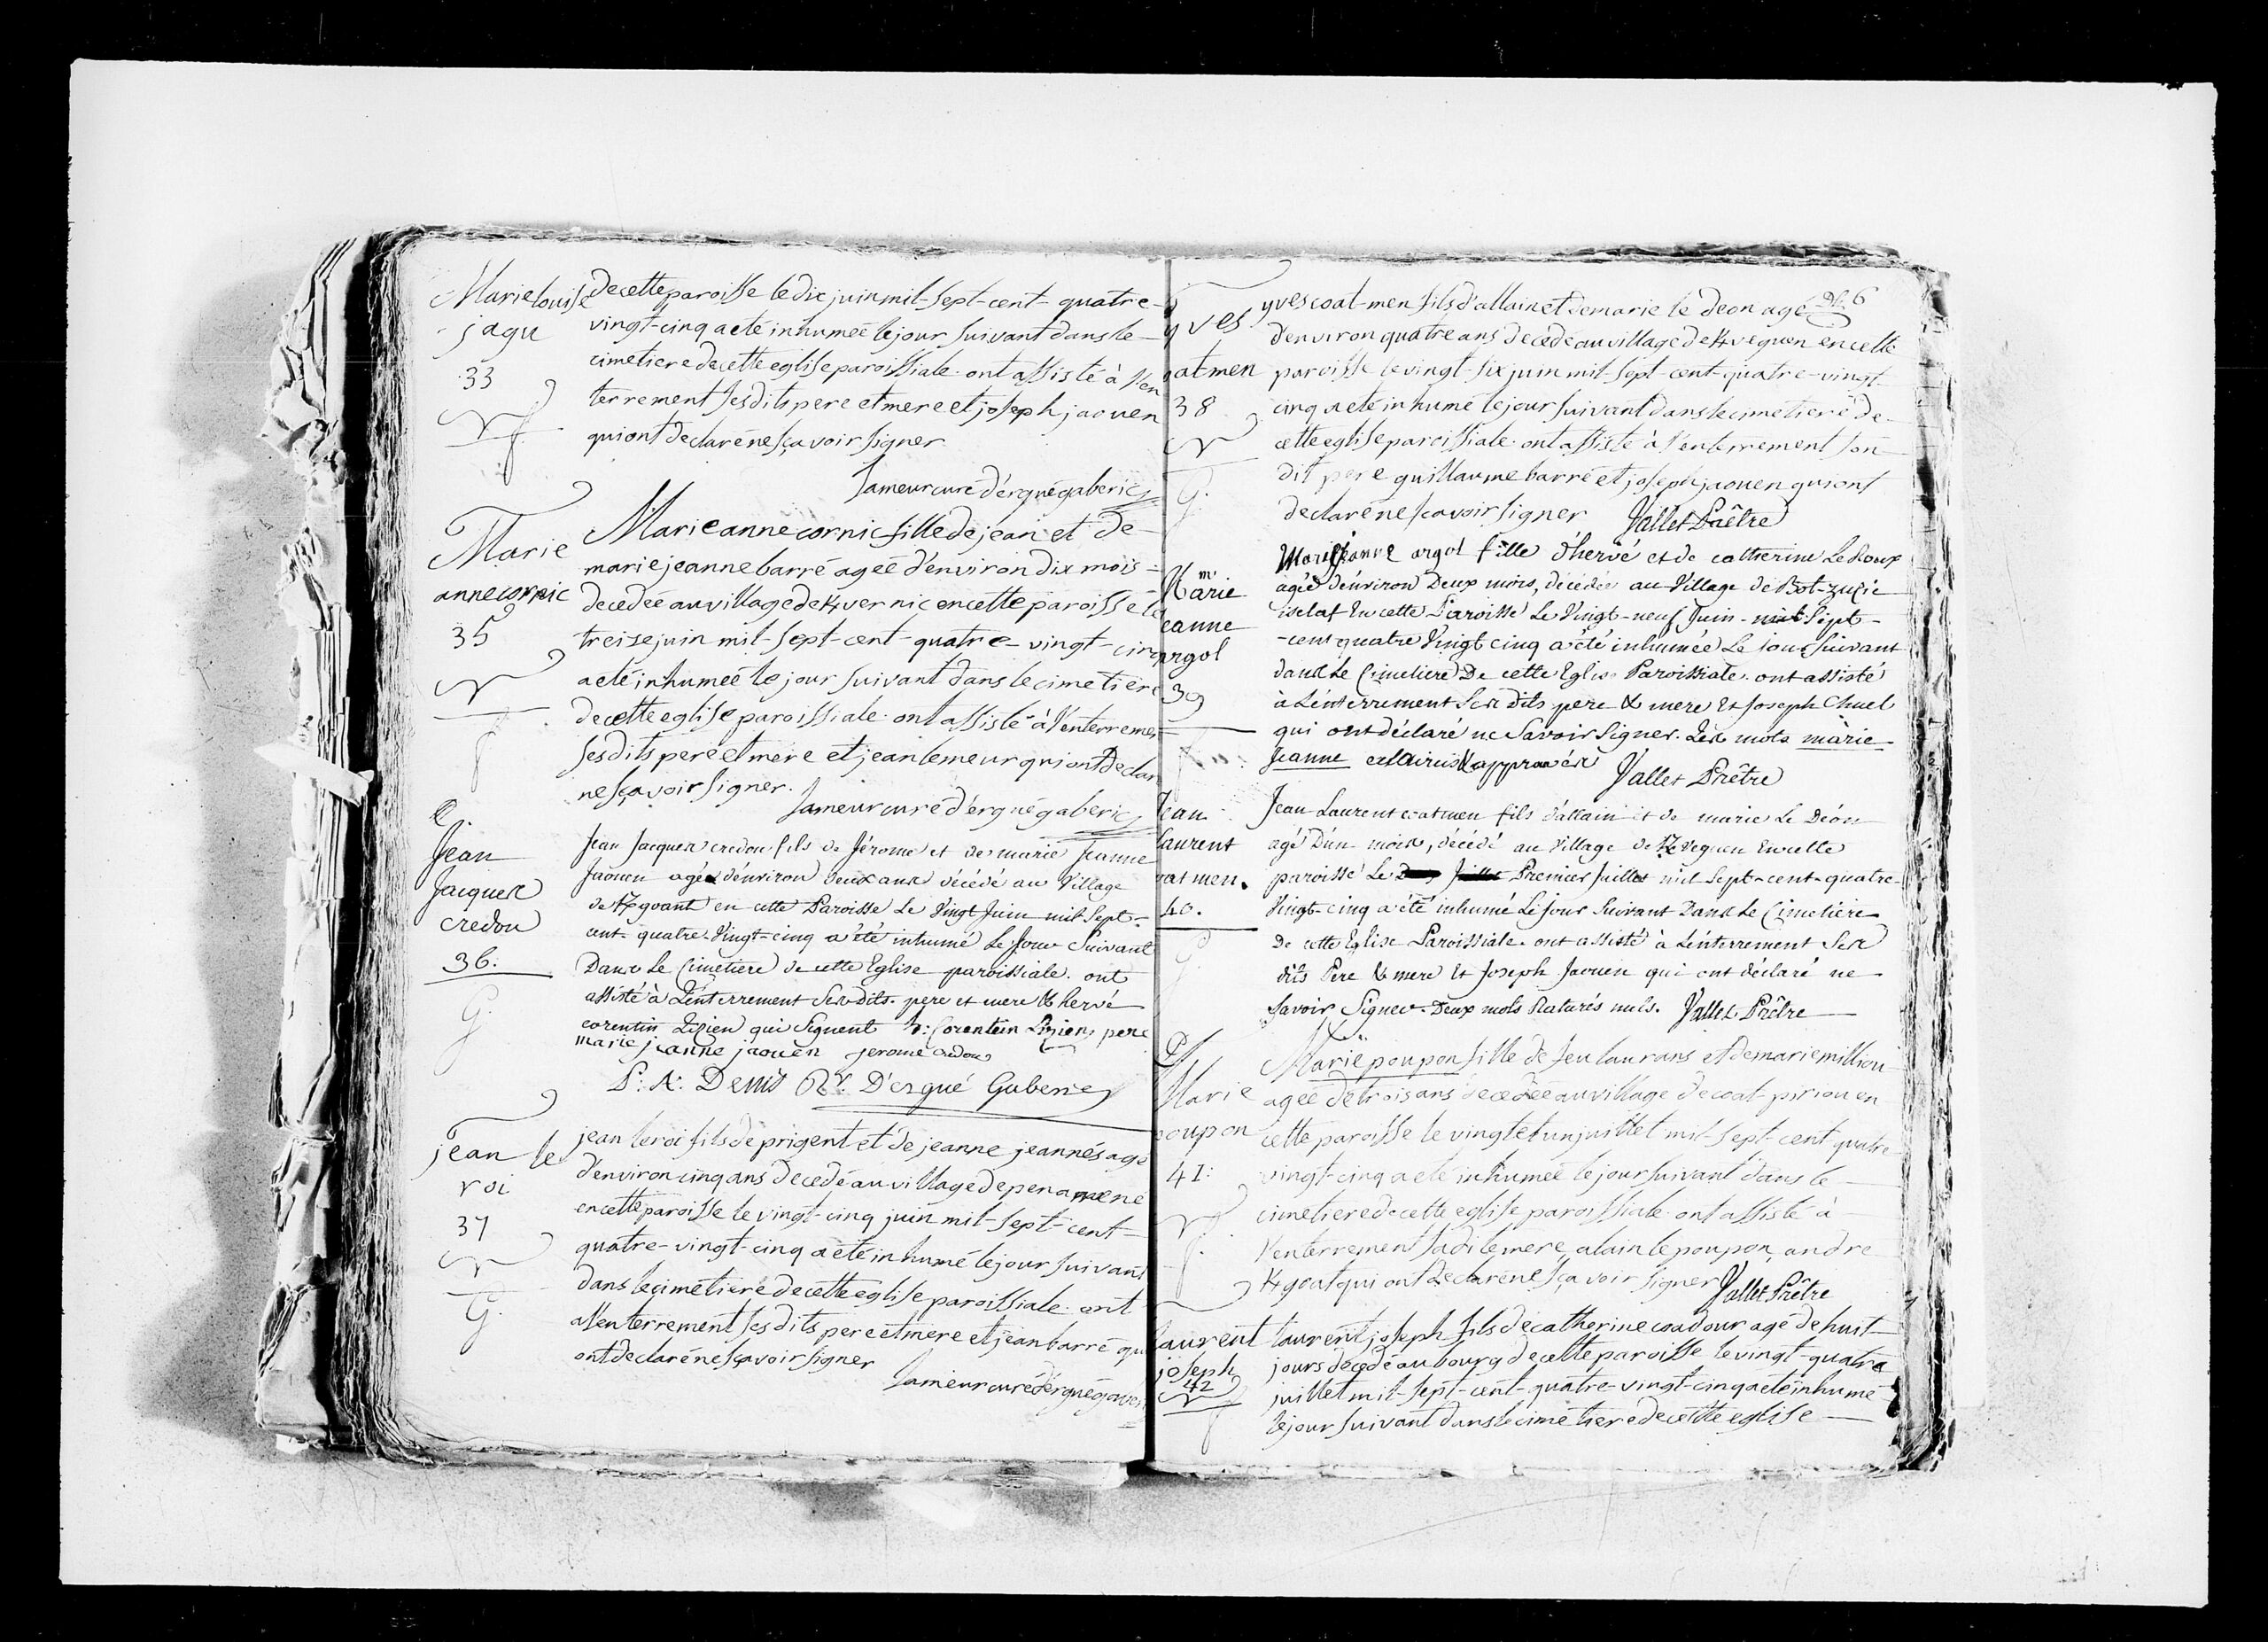 Marie louise
jagu
33
decette paroisse ledix juin mil-sept-cent-quatre-
vingt-cinq aeté inhumeé lejour suivant dans le-
cimetiere decette eglise paroissiale. ont assisté à l'en
terrement sesdits pere et mere et joseph jaouen
qui ont declaré ne sçavoir signer
Lameur curé d'ergué gaberic
Marie
anne cornic
35
Marie anne cornic fille de jean et de-
marie jeanne barré ageé d'environ dix mois-
decedeé au village de Kvernic en cette paroisse le
treise juin mil-sept-cent-quatre-vingt-cinq
aeté inhumeé le jour suivant dans le cimetiere
decette eglise paroissiale. ont assisté à l'enterremen
sesdits pere et mere et jean lemeur qui ont declar
ne sçavoir signer.
Lameur curé d'ergué gaberic
Jean
Jacques
credou
36.
G.
Jean Jacques credou fils de Jérome et de marie Jeanne
Jaouen agé d'énviron deux ans décédé au Village
de Kgoant en cette Paroisse Le Vingt Juin mil Sept-
cent-quatre-Vingt-cinq a été inhumé Le Jour Suivant
Dans Le Cimetiere de cette Eglise paroissiale. ont
assisté à L'énterrement Ses dits. pere et mere & hervé
corentin Lizien qui Signent h: Corentin Lizien, pere
marie jeanne jaouen jerome credou
P: A: Denis Rr. D'ergué Gaberic
jean le
roi
37
G.
jean leroi fils de prigent et de jeanne jeannés agé
d'environ cinq ans decedé au village de penamené
en cette paroisse le vingt-cinq juin mil-sept-cent-
quatre-vingt-cinq aeté inhumé le jour suivant
dans le cimetiere decette eglise paroissiale. ont
assenterrement sesdits pere et mere et jean barré qu
ont declaré ne sçavoir signer
Lameur curé d'ergué gaberi
6
yves
oatmen
38
G.
yves coat-men fils d'allain et de marie le deon agé
d'environ quatre ans decedé au village de Kveguen en cette
paroisse le vingt-six juin mil-sept-cent-quatre-vingt-
cinq aeté inhumé le jour suivant dans le cimetiere de-
cette eglise paroissiale. ont assisté à l'enterrement son
dit pere guillaume barré et joseph jaouen qui ont
declaré ne sçavoir signer Vallet Prêtre
Marie
eanne
argol
39
Marie Jeanne argol fille d'hervé et de catherine Le Roux
agée d'énviron Deux mois, décédée au Village de Bot-
En cette Paroisse Le Vingt-neuf Juin-mil Sept-
-cent quatre Vingt cinq a été inhumée Le jour Suivant
dans Le Cimetiere De cette Eglise Paroissiale. ont assisté
à L'énterrement Ses Dits pere & mere Et Joseph Chuel
qui ont déclaré ne Savoir Signer. Les mots marie-
Jeanne & approuvés Vallet Prêtre
Jean
Laurent
oat men.
40.
Jean Laurent coatmen fils d'allain et de marie Le Déon
agé D'un mois, décédé au Village de Kveguen En cette
paroisse Le Premier Juillet mil Sept-cent-quatre-
Vingt-cinq a été inhumé Le jour Suivant Dans Le Cimetiere
De cette Eglise Paroissiale. ont assisté à L'énterrement Ses
dits Pere & mere Et Joseph Jaouen qui ont déclaré ne
Savoir Signer. Deux mots Raturés nuls. Vallet Prêtre
Marie
poupon
41:
Marie poupon fille de feu laurans et de marie million
ageé de trois ans decedeé au village de coat-piriou en
cette paroisse le vingt et un juillet mil-sept-cent quatre
vingt-cinq aeté inhumeé le jour suivant dans le-
cimetiere decette eglise paroissiale. ont assisté à-
l'enterrement sadite mere, alain le poupon, andre
Kgoat qui ont declaré ne sça voir signer Vallet Prêtre
laurent
joseph
42
laurent joseph fils de catherine coadour agé de huit-
jours decedé au bourg decette paroisse le vingt-quatre
juillet mil-sept-cent-quatre-vingt-cinq aeté inhumé
le jour suivant dans le cimetiere decette eglise-